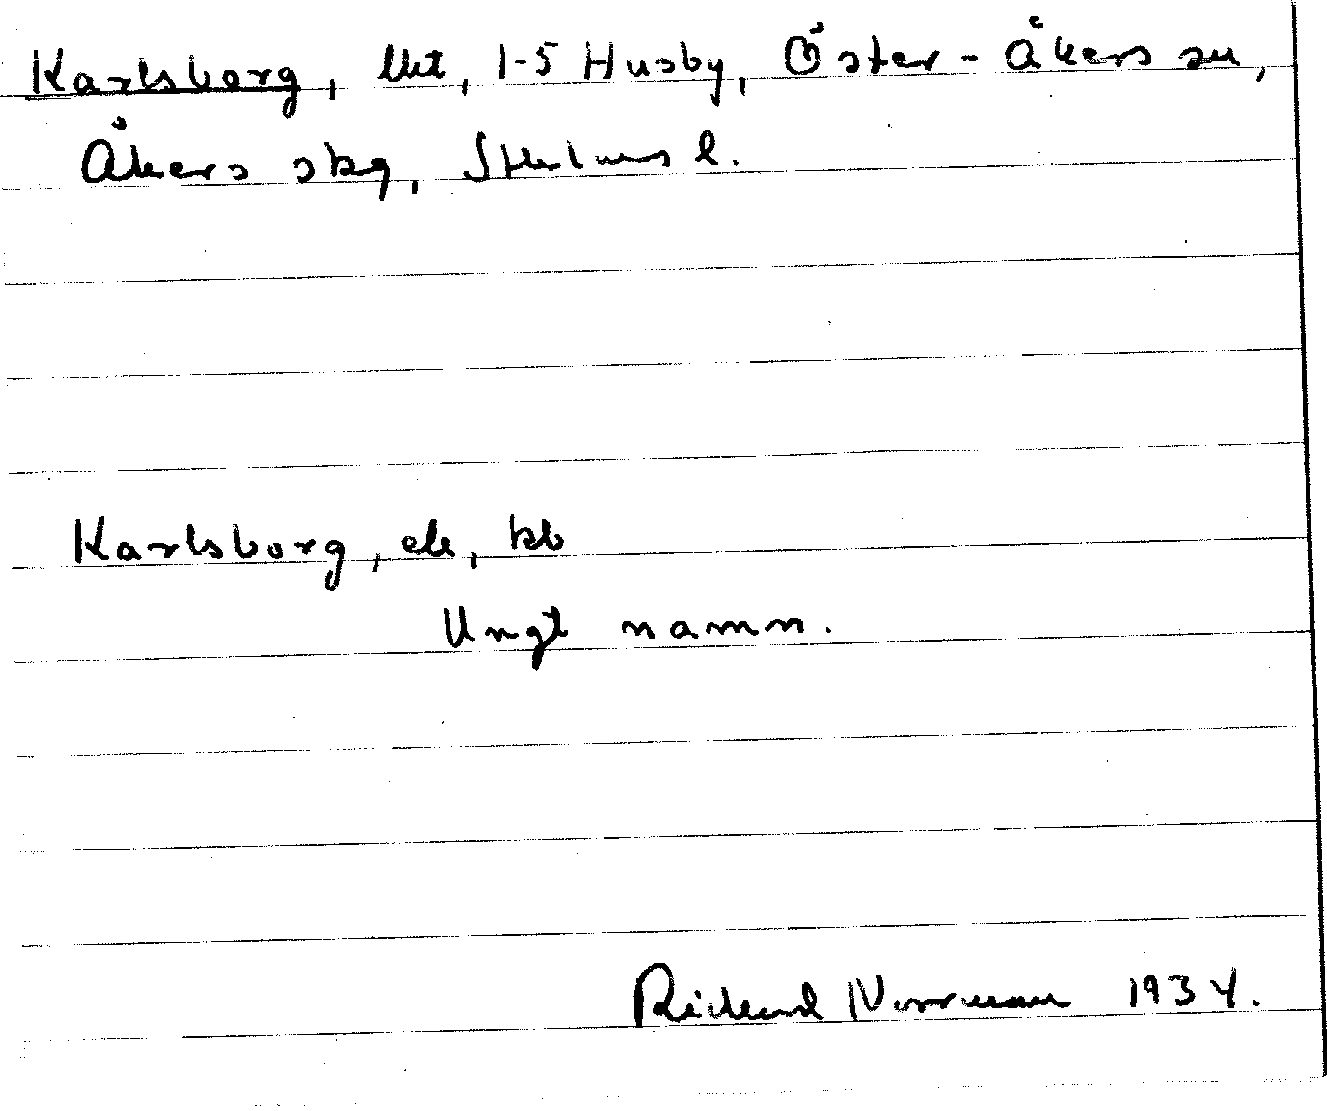 Karlsborg, lht, 1-5 Husby, Öster-Åkers sn,
Åkers skg, Sthlms l.
Karlsborg, ek, kb
Ungt namn.
Rickard Norrman 1934.